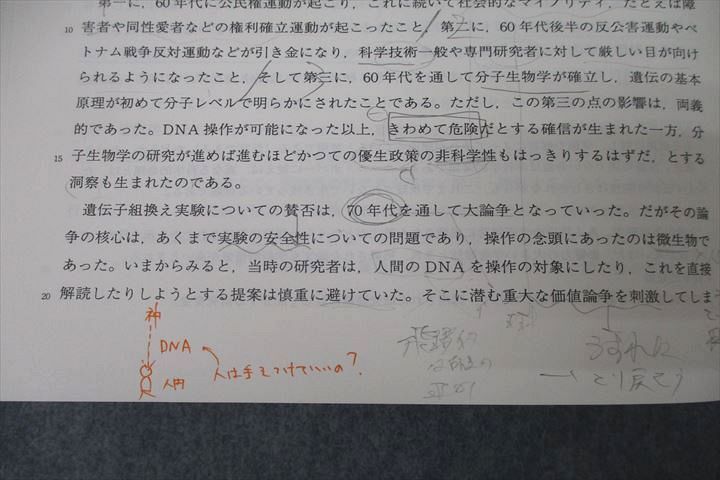 第一に，60年代に公民権運動が起こり，これに続いて社会的なマイノリティ，たとえば障
10 害者や同性愛者などの権利確立運動が起こったこと，第二に，60年代後半の反公害運動やベ
トナム戦争反対運動などが引き金になり，科学技術一般や専門研究者に対して厳しい目が向け
られるようになったこと，そして第三に，60年代を通して分子生物学が確立し，遺伝の基本
原理が初めて分子レベルで明らかにされたことである。ただし，この第三の点の影響は，両義
的であった。DNA操作が可能になった以上，きわめて危険だとする確信が生まれた一方，分
15 子生物学の研究が進めば進むほどかつての優生政策の非科学性もはっきりするはずだ，とする
洞察も生まれたのである。
遺伝子組換え実験についての賛否は，70年代を通して大論争となっていった。だがその論
争の核心は，あくまで実験の安全性についての問題であり，操作の念頭にあったのは微生物で
あった。いまからみると，当時の研究者は，人間のDNAを操作の対象にしたり，これを直接
20 解読したりしようとする提案は慎重に避けていた。そこに潜む重大な価値論争を刺激してしま
神
DNA
人は手をつけていいの？
人間